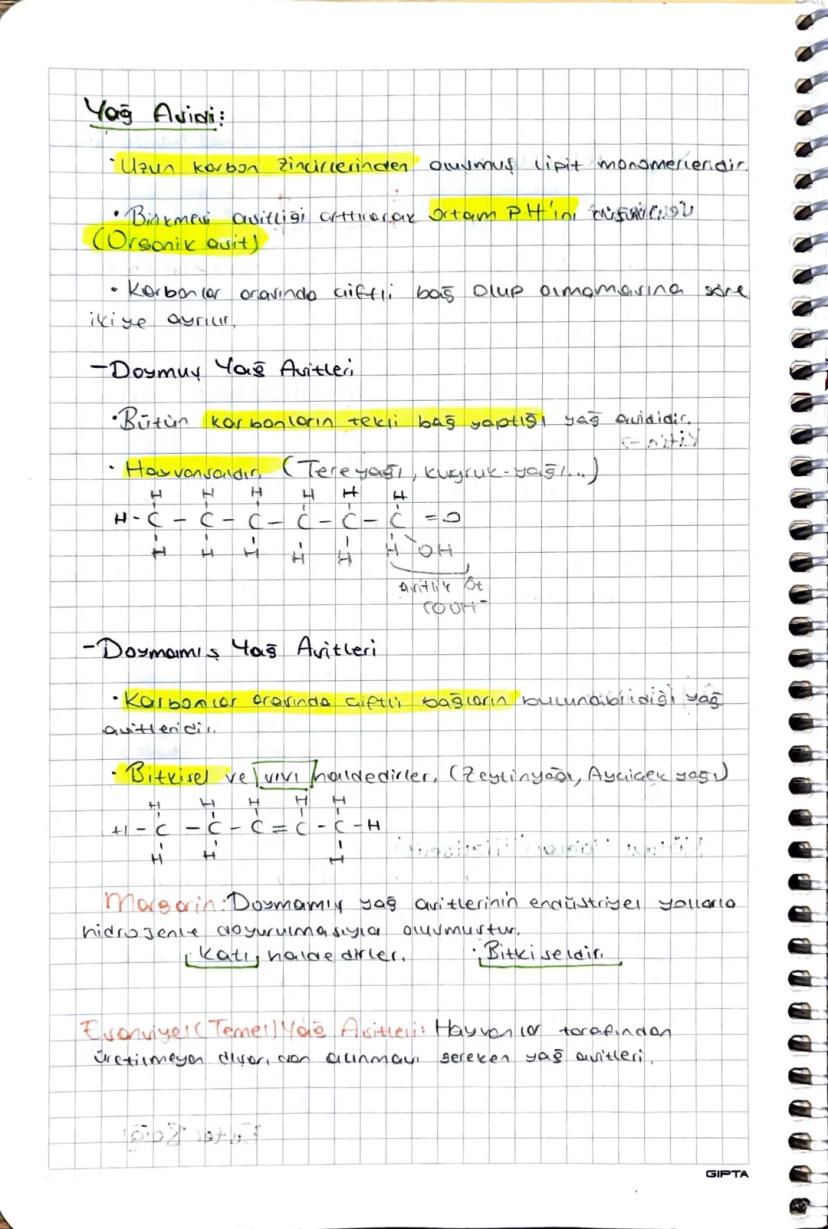 Yağ Asidi:
• Uzun karbon zincirlerinden oluşmuş lipit monomerleridir.
• Birikmesi asitliği arttırarak ortam PH'ını düşürücüdü
(Organik asit)
• Karbonlar arasında çiftli bağ olup olmamasına göre
ikiye ayrılır.
-Doymuş Yağ Asitleri
•Bütün karbonların tekli bağ yaptığı yağ asididir.
• Hayvansaldır. (Tereyağı, kuyruk-yağı...)
H H H H H H
H - C - C - C - C - C - C = O
H H H H H H OH
asitlik öt
COOH-
-Doymamış Yağ Asitleri
• Karbonlar arasında çiftli bağların bulunabildiği yağ
asitleridir.
• Bitkisel ve sıvı haldedirler. (Zeytinyağı, Ayçiçek yağı)
H H H H H
H - C - C - C = C - C - H
H H H
Margarin: Doymamış yağ asitlerinin endüstriyel yollarla
hidrojenle doyurulmasıyla oluşmuştur.
Katı haldedirler. • Bitkiseldir.
Esansiyel (Temel) Yağ Asitleri: Hayvanlar tarafından
üretilmeyen dışarıdan alınması gereken yağ asitleri.
GIPTA